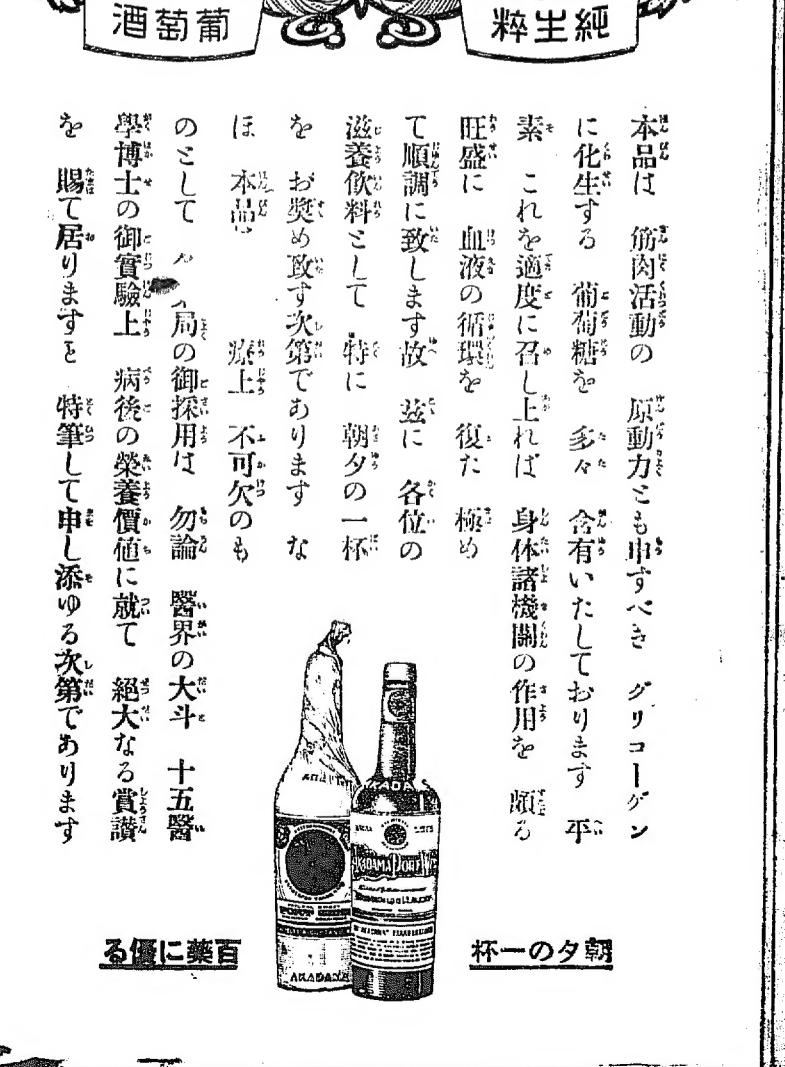 純生粋
葡萄酒
本品は 筋肉活動の 原動力とも申すべき グリコーゲン
に化生する 葡萄糖を 多々 含有いたしております 平
素 これを適度に召し上れば 身体諸機關の作用を 頗る
旺盛に 血液の循環を 復た 極め
て順調に致します故 玆に 各位の
滋養飮料として 特に 朝夕の一杯
を お奬め致す次第であります な
ほ 本品 療上 不可欠のも
のとして 局の御採用は 勿論 醫界の大斗 十五醫
學博士の御實驗上 病後の榮養價値に就て 絕大なる賞讃
を 賜て居りますと 特筆して申し添ゆる次第であります
朝夕の一杯
百藥に優る
AKADAMA
AKADAMA PORT WINE
PORT WINE